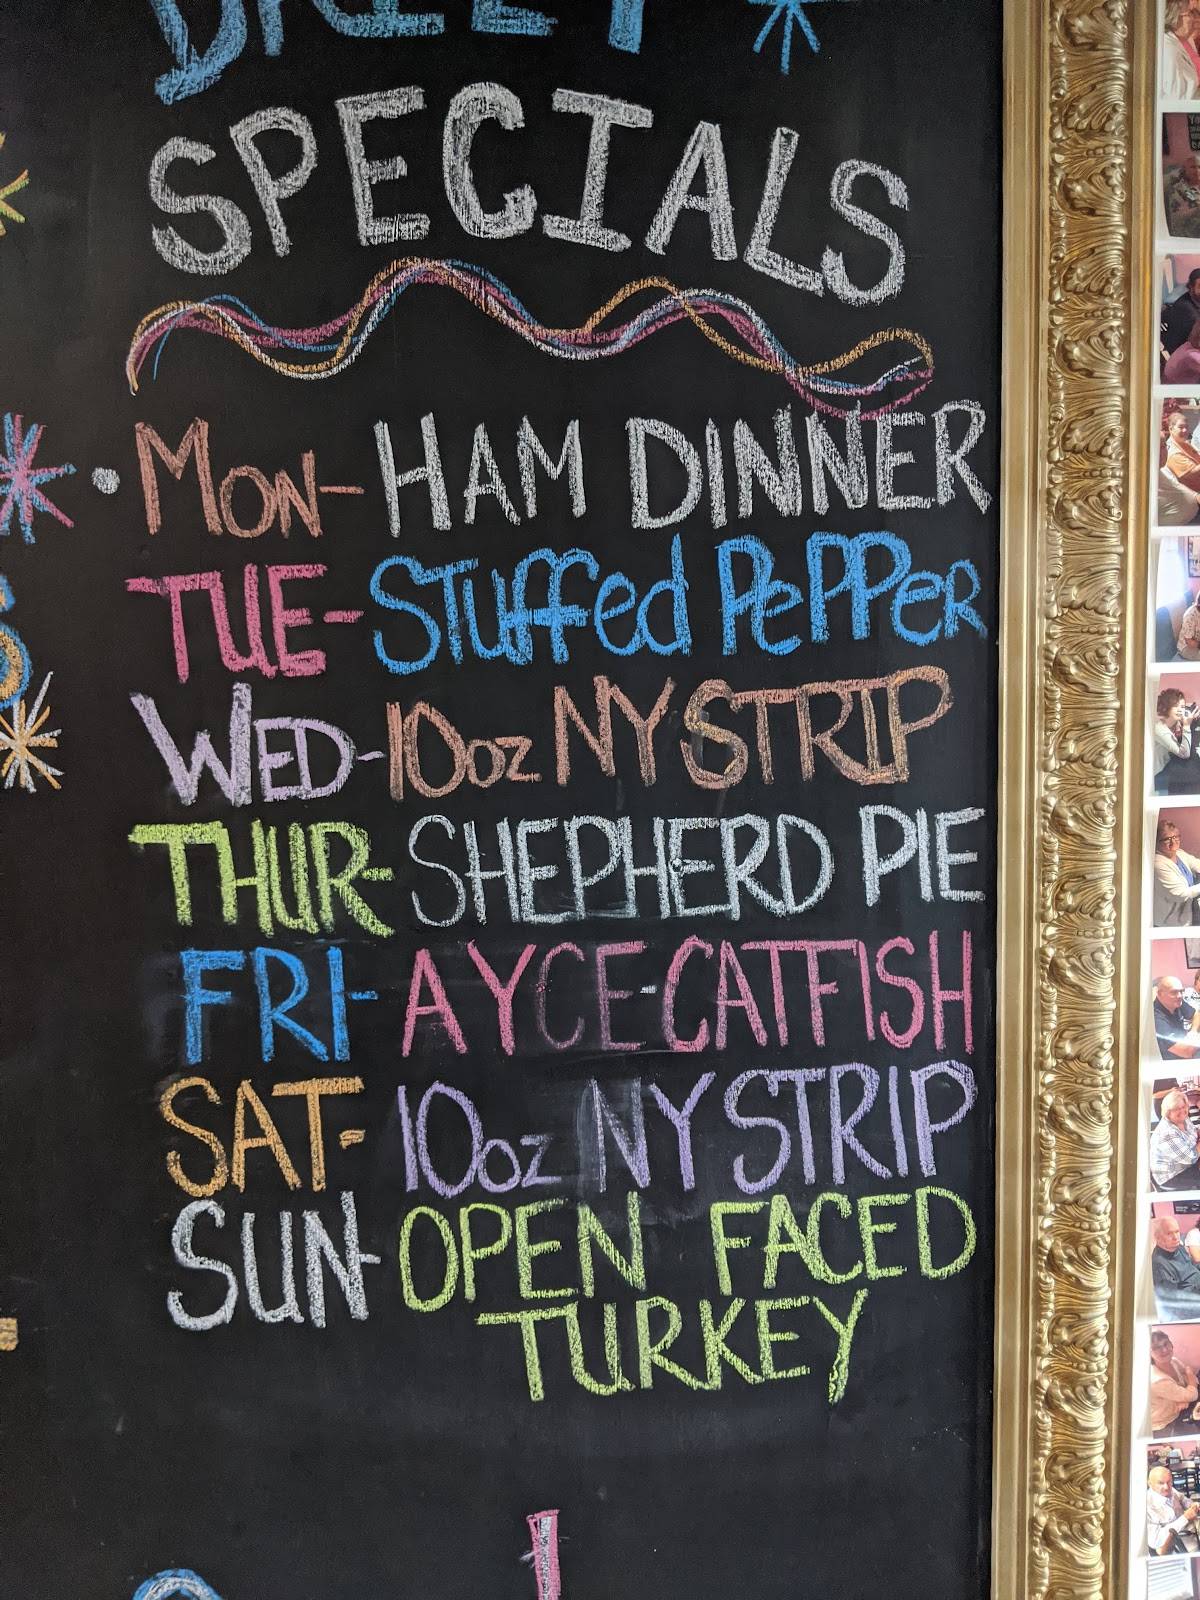 DAILY
SPECIALS
MON- HAM DINNER
TUE- Stuffed PePPeR
WED- 10oz NY STRIP
THUR- SHEPHERD PIE
FRI- AYCE-CATFISH
SAT- 10oz NY STRIP
SUN- OPEN FACED
TURKEY